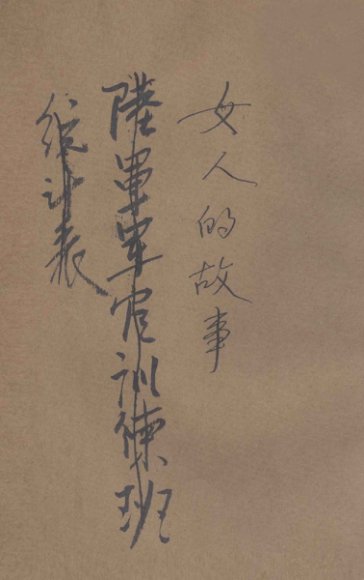 女人的故事
陸軍軍官訓練班
統計表